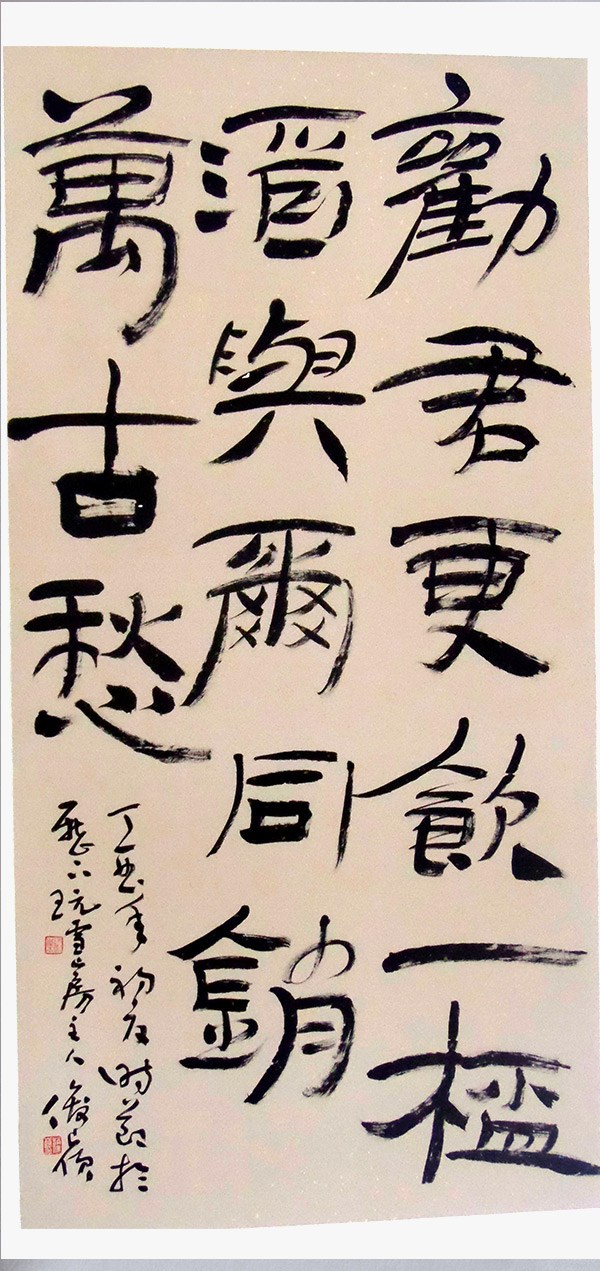 勸君更飲一杯
酒與爾同銷
萬古愁
丁酉年初夏时節於
玩雪房主人